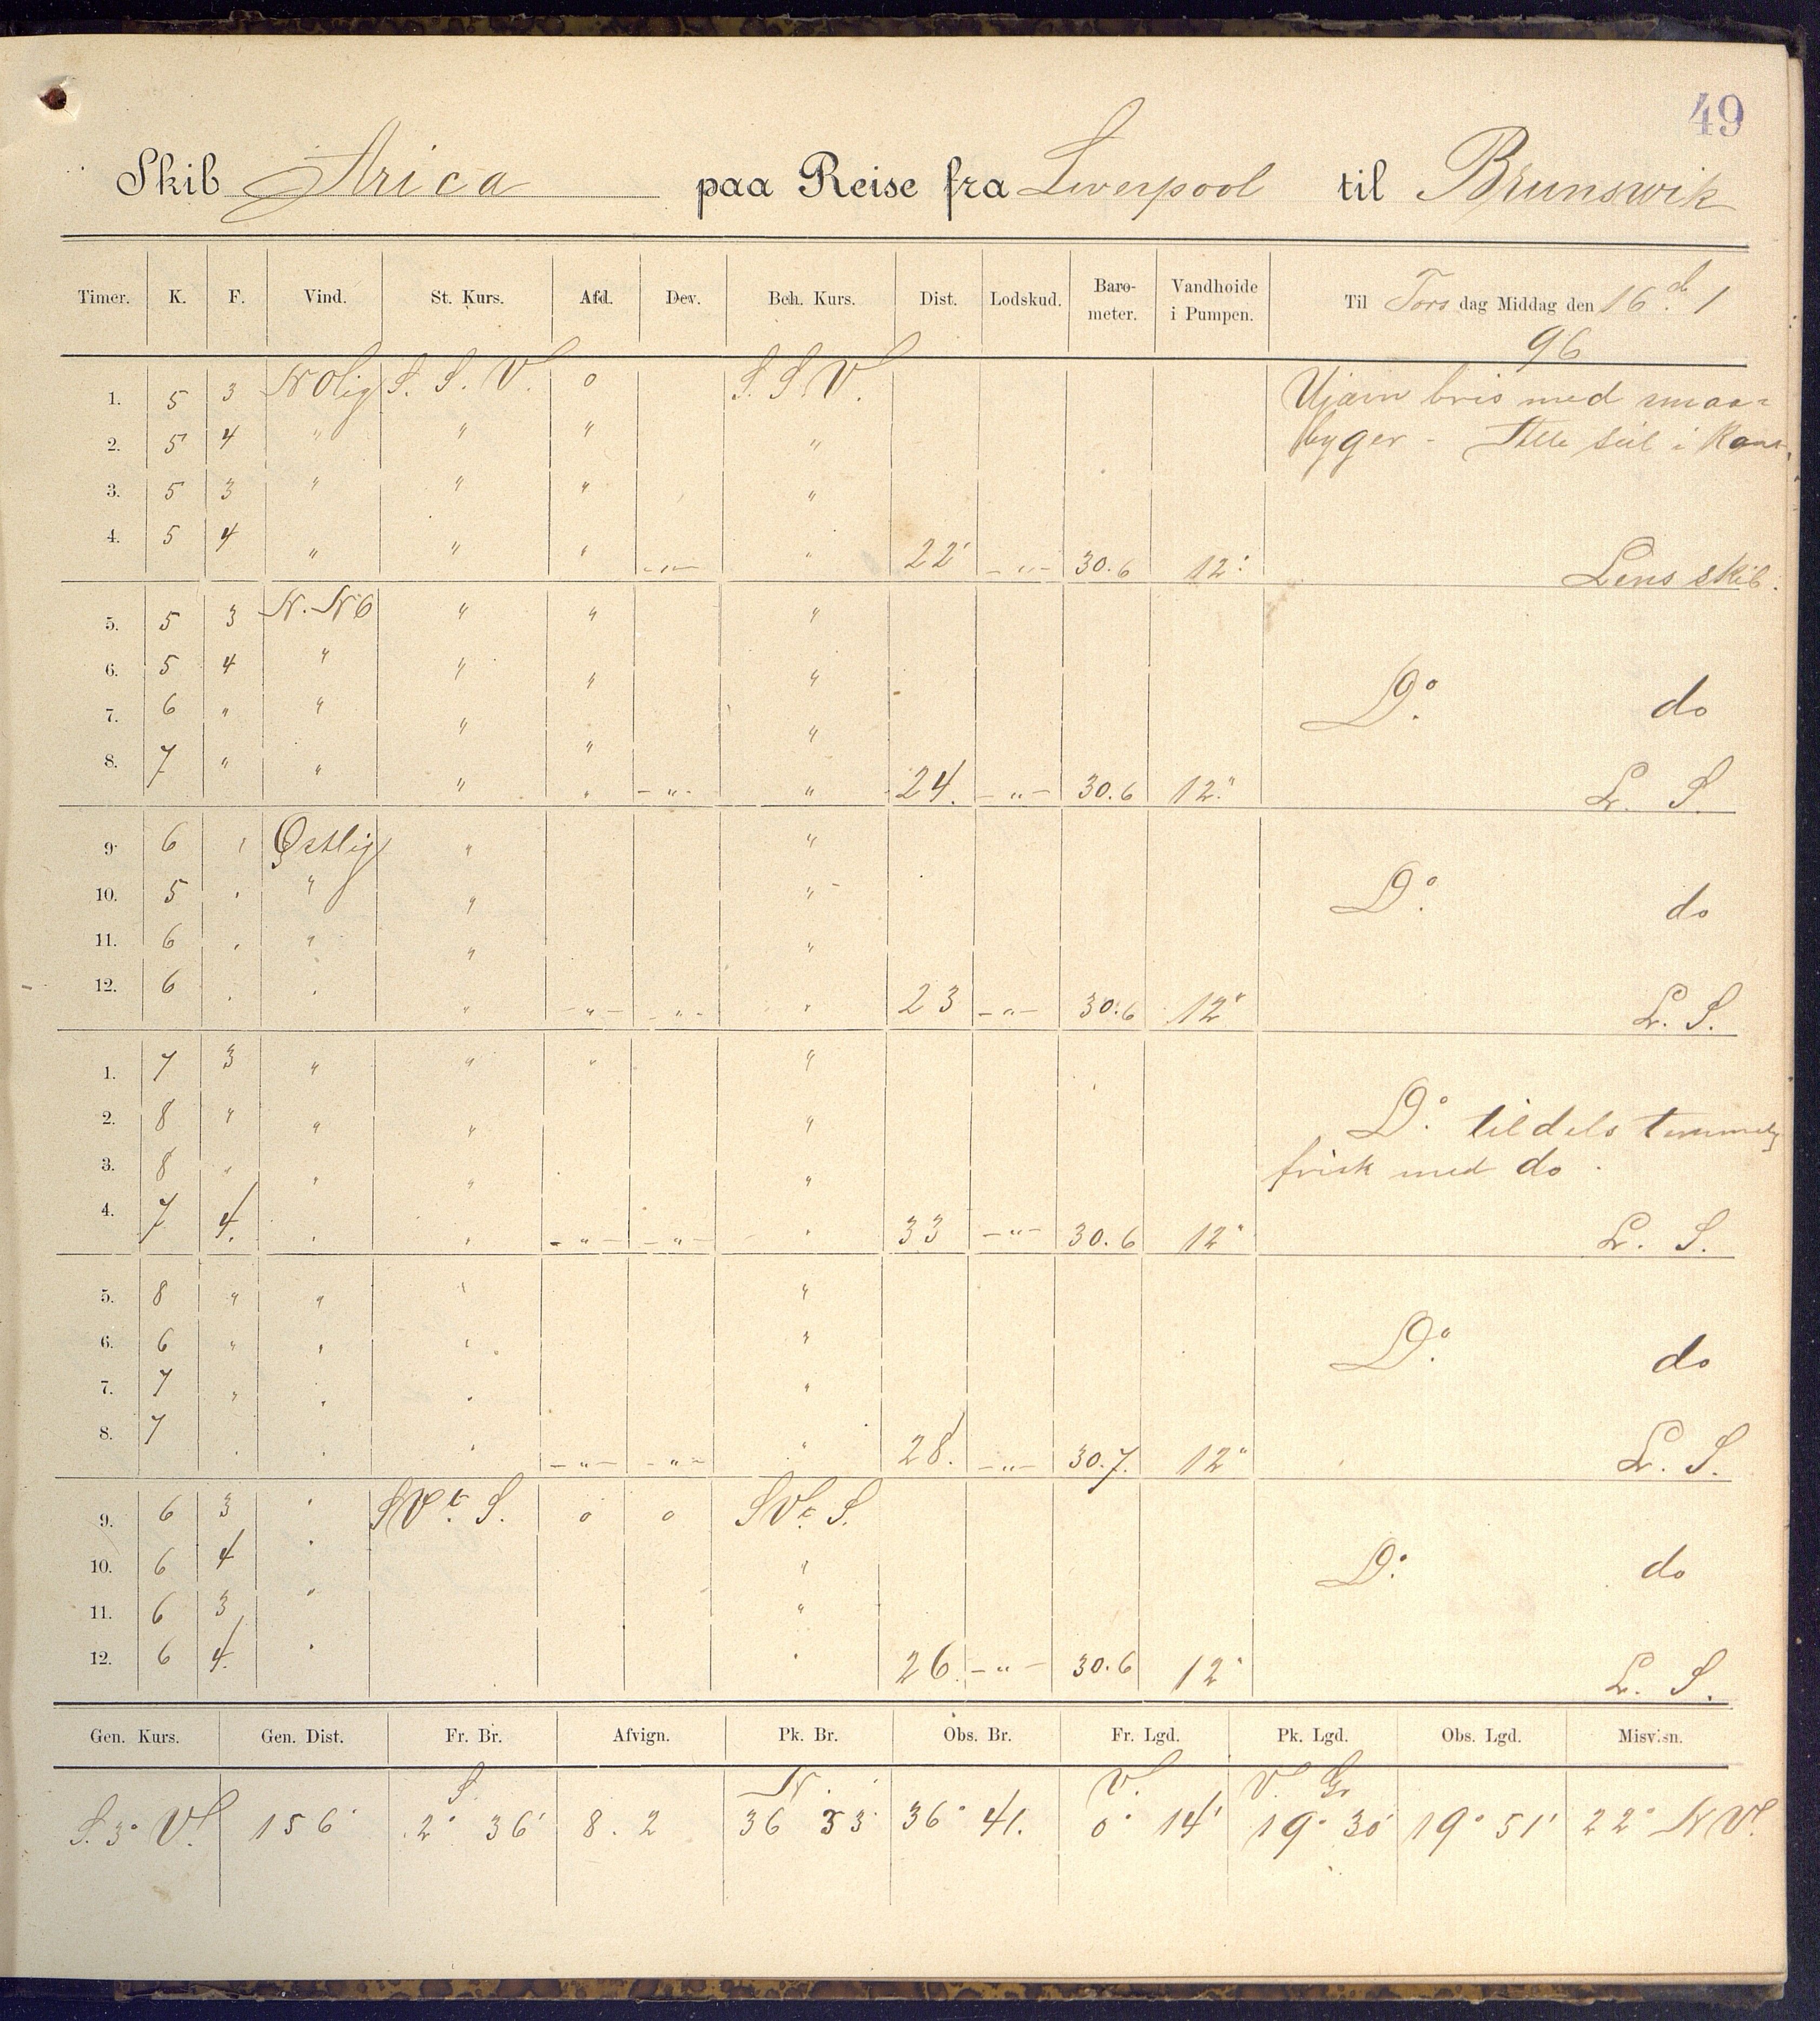 49
Skib Arica paa Reise fra Liverpool til Brunswik
Timer. K. F. Vind. St. Kurs. Afd. Dev. Beh. Kurs. Dist. Lodskud. Baro-meter. Vandhoide i Pumpen. Til Torsdag Middag den 16d. 1
96
1. 5 3 NOlig S. S. V. o S. S. V. Ujævn bris med smaa-
2. 5 4 " " " " byger - Alle Seil i
3. 5 3 " " " "
4. 5 4 " " " -"- " 22' -"- 30.6 12" Lens skib.
5. 5 3 N. NO " " "
6. 5 4 " " " " Do. do
7. 6 " " " " "
8. 7 " " " " -"- " 24. -"- 30.6 12" L. S.
9. 6 " Østlig " "
10. 5 " " " " Do. do
11. 6 " " " "
12. 6 " " " -"- -"- " 23 -"- 30.6 12" L. S.
1. 7 3 " " " "
2. 8 " " " " Do. tildels temmelig
3. 8 " " " " frisk med do.
4. 7 4. " " -"- -"- " 33 -"- 30.6 12" L. S.
5. 8 " " " "
6. 6 " " " " Do. do
7. 7 " " " "
8. 7 " " " -"- -"- " 28. -"- 30.7. 12" L. S.
9. 6 3 " SVt. S. o o SVt. S.
10. 6 4 " " Do. do
11. 6 3 " "
12. 6 4. " " 26. -"- 30.6 12" L. S.
Gen. Kurs. Gen. Dist. Fr. Br. Afvign. Pk. Br. Obs. Br. Fr. Lgd. Pk. Lgd. Obs. Lgd. Misvisn.
S. N. V. V. Gr
S. 3° V. 156' 2° 36' 8. 2 36 33' 36° 41. 0° 14' 19° 30' 19° 51' 22° NV.